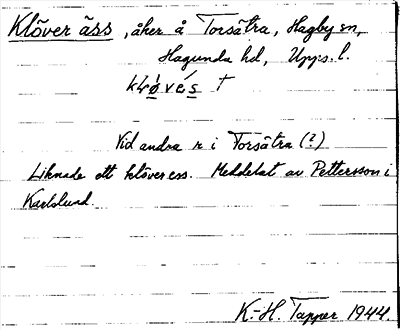 Klöver äss, åker å Torsätra, Hagby sn,
Hagunda hd, Upps. l.
Vid andra r i Torsätra (?)
Liknade ett klöver ess. Meddelat av Pettersson i
Karlslund.
K.-H. Tapper 1944.